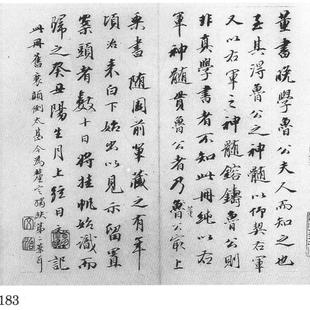 董書晚學魯公夫人而知之也
至其得魯公之神髓以仰契右軍
又以右軍之神髓鎔鑄魯公則
非真學書者不知此冊純以右
軍神髓貫魯公者乃魯公最上
乘書 隨園前輩藏之有年
頃者來白下始出以見示留置
案頭者數十日將挂帆始識而
歸之癸丑陽生月上弦日 記
此冊舊裝顛倒太甚今為釐定
183